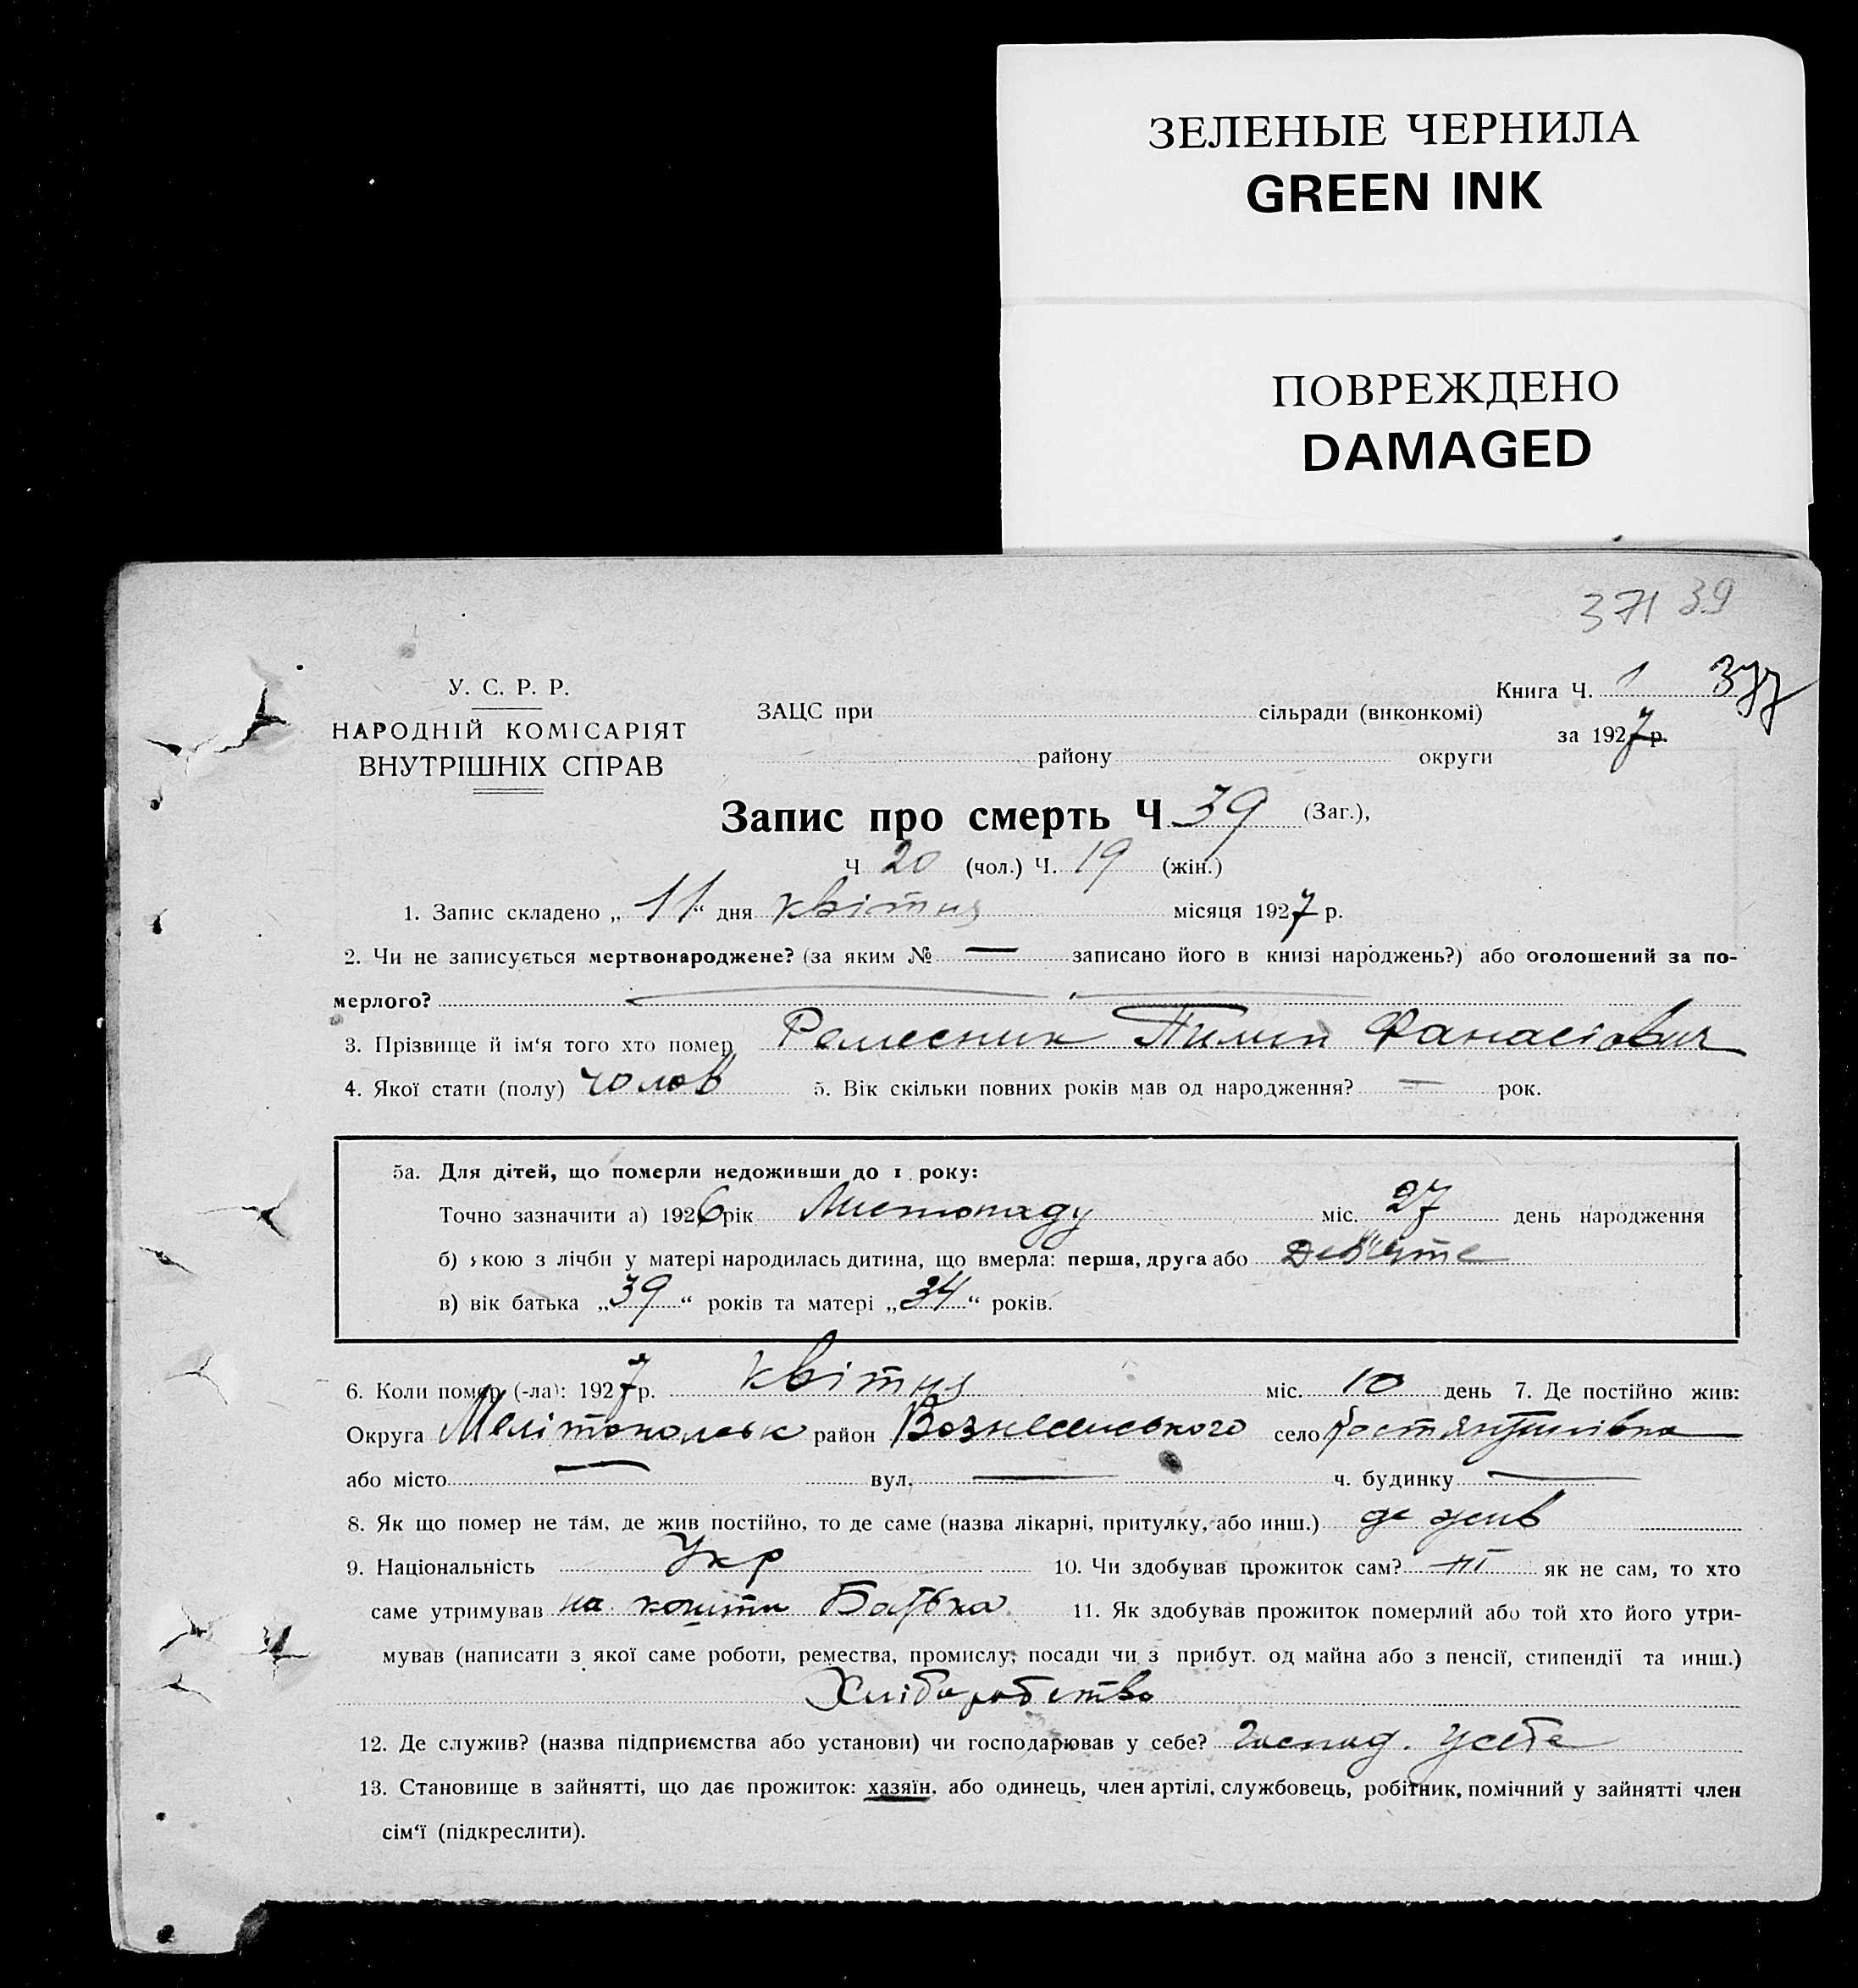 ЗЕЛЕНЫЕ ЧЕРНИЛА
GREEN INK
ПОВРЕЖДЕНО
DAMAGED
371 39
У. С. Р. Р.
НАРОДНІЙ КОМІСАРІЯТ
ВНУТРІШНІХ СПРАВ
Книга Ч. 1 377
ЗАЦС при сільради (виконкомі)
за 1927 р.
району округи
Запис про смерть Ч 39 (Заг.),
Ч 20 (чол.) Ч. 19 (жін.)
1. Запис складено „ 11 “ дня квітня місяця 1927 р.
2. Чи не записується мертвонароджене? (за яким № — записано його в книзі народжень?) або оголошений за по-
мерлого?
3. Прізвище й ім‘я того хто помер Ремесник Пимен Фанасіович
4. Якої стати (полу) чолов 5. Вік скільки повних років мав од народження? — рок.
5а. Для дітей, що померли недоживши до 1 року:
Точно зазначити а) 1926 рік Листопаду міс. 27 день народження
б) якою з лічби у матері народилась дитина, що вмерла: перша, друга або Дев'яте
в) вік батька „39“ років та матері „34“ років.
6. Коли помер (-ла): 1927 р. квітня міс. 10 день 7. Де постійно жив:
Округа Мелітопольськ район Вознесенського село Костянтинівка
або місто — вул. — ч. будинку —
8. Як що помер не там, де жив постійно, то де саме (назва лікарні, притулку, або инш.) де жив
9. Національність Укр 10. Чи здобував прожиток сам? ні як не сам, то хто
саме утримував на кошти Батька 11. Як здобував прожиток померлий або той хто його утри-
мував (написати з якої саме роботи, ремества, промислу, посади чи з прибут. од майна або з пенсії, стипендії та инш.)
Хліборобство
12. Де служив? (назва підприємства або установи) чи господарював у себе? Господ. у себе
13. Становище в зайнятті, що дає прожиток: хазяїн, або одинець, член артілі, службовець, робітник, помічний у зайнятті член
сім‘ї (підкреслити).